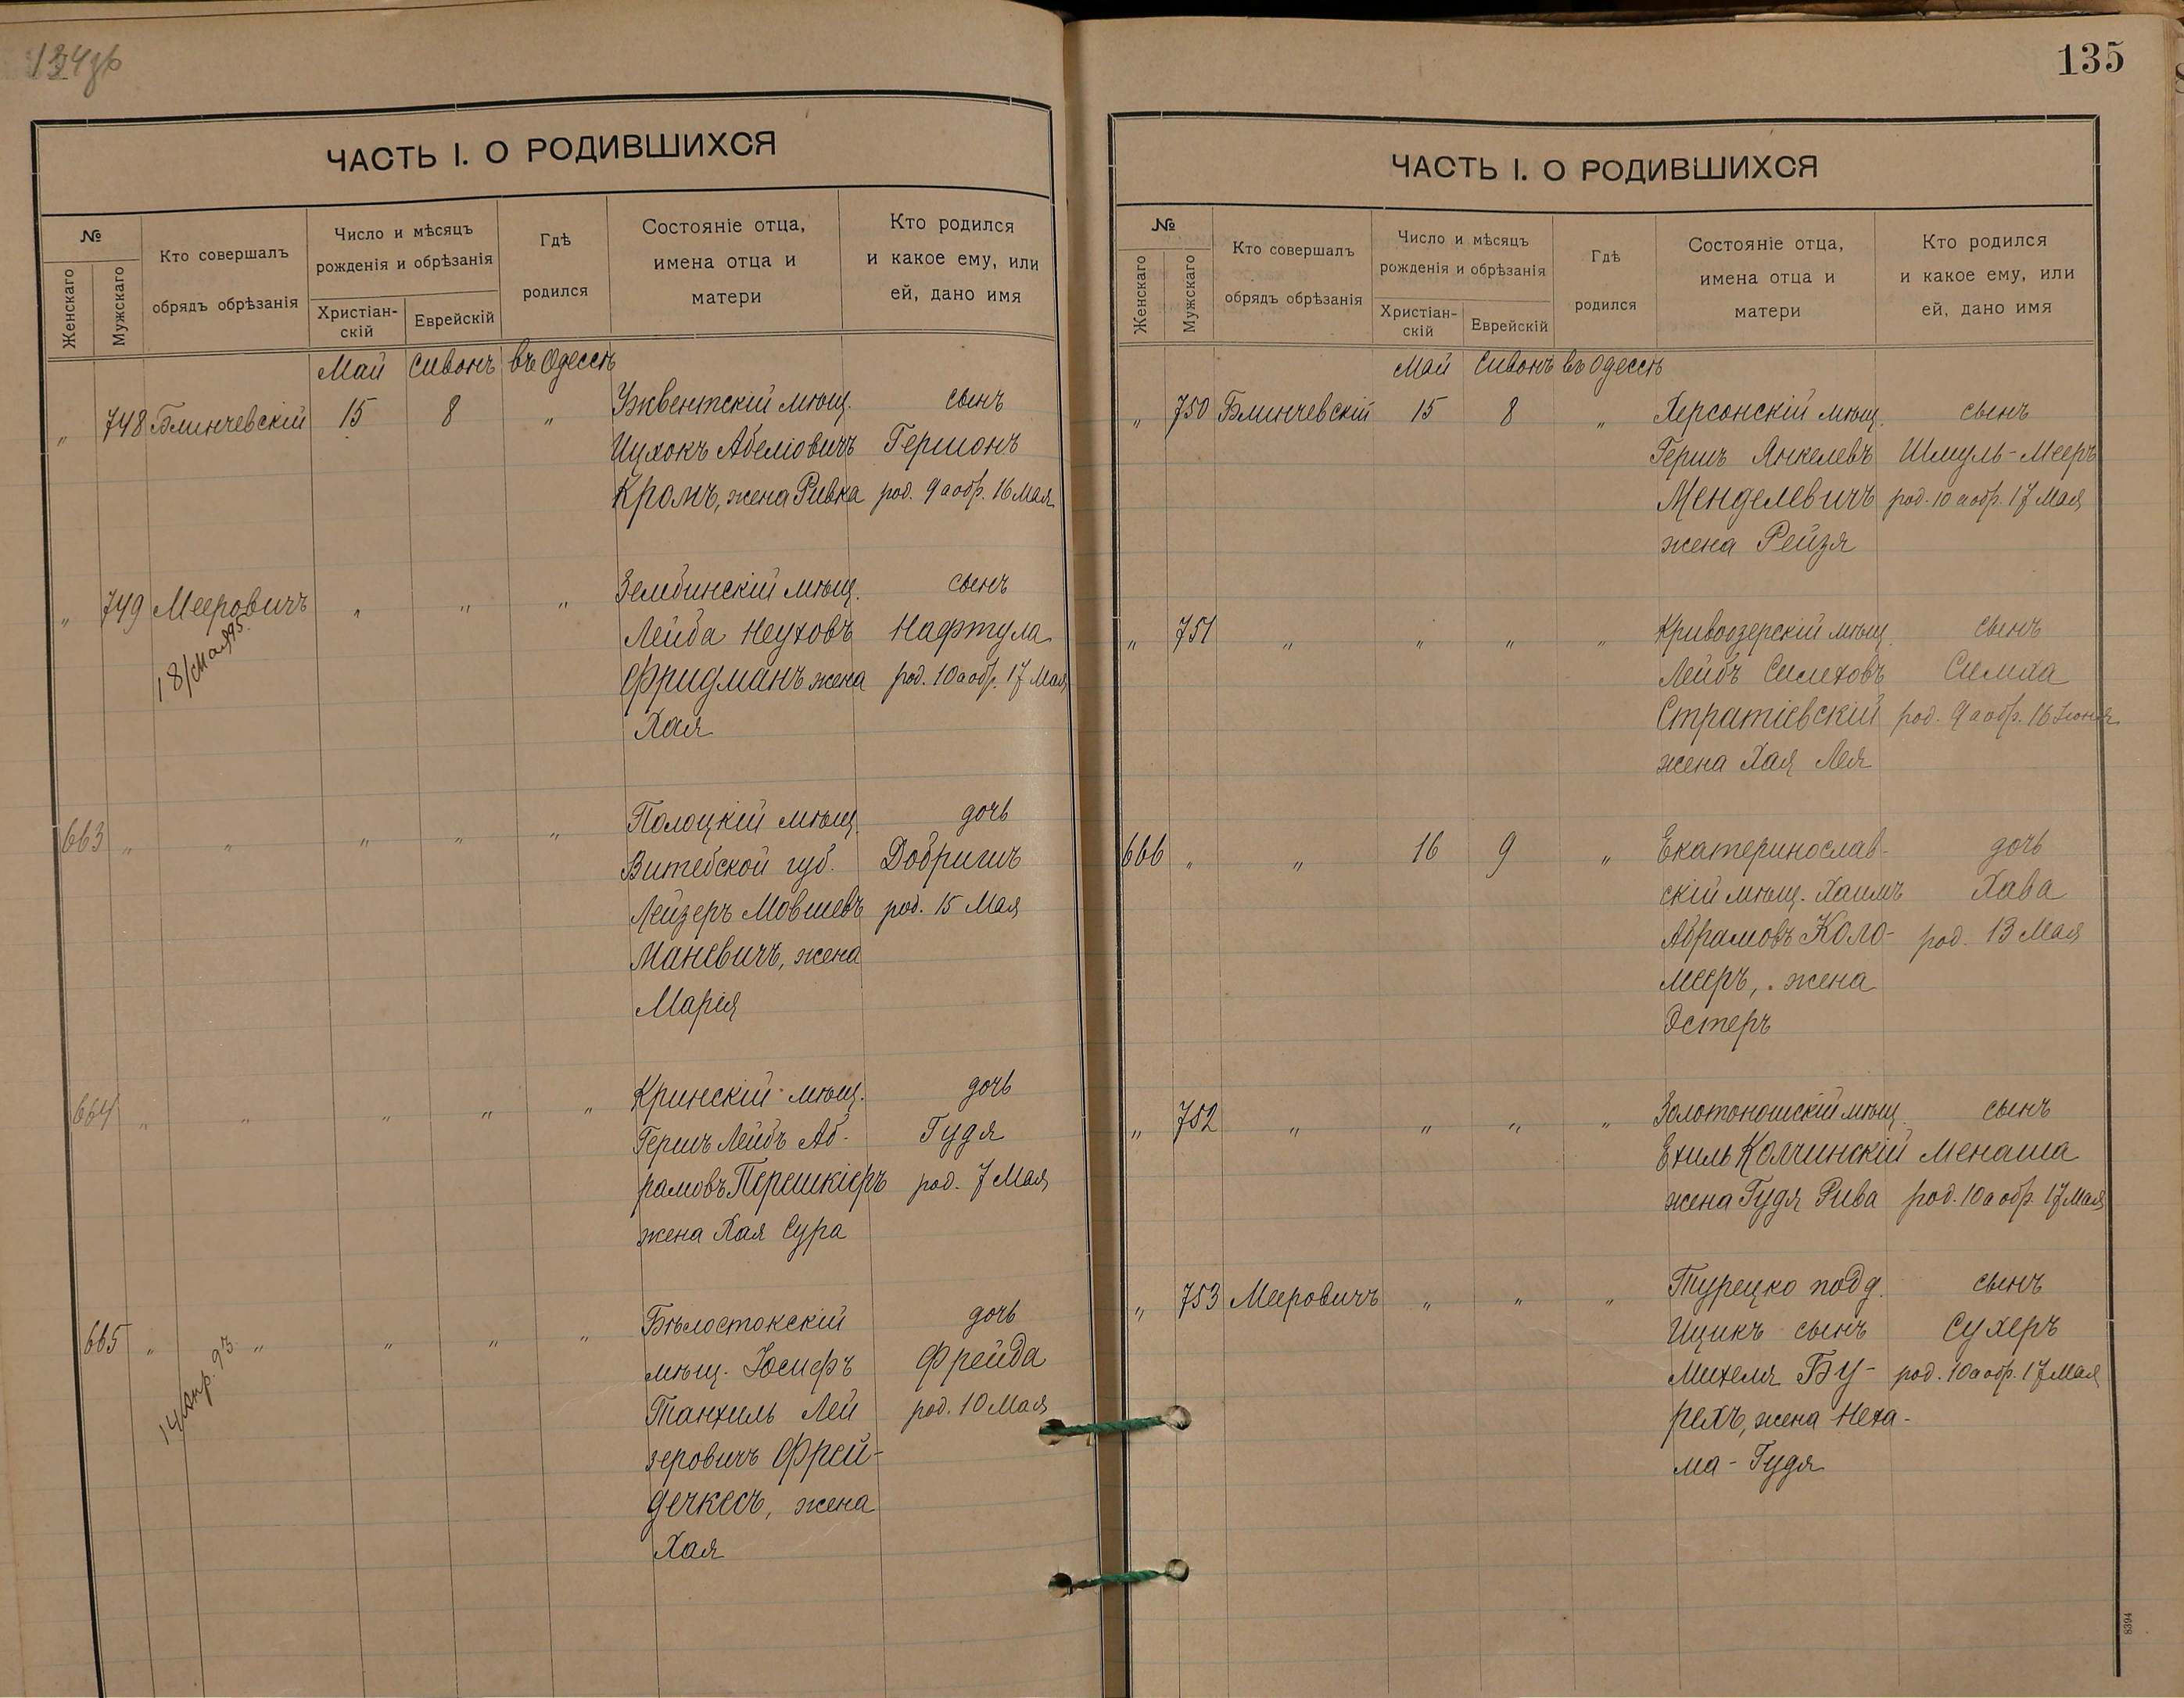 134об
ЧАСТЬ I. О РОДИВШИХСЯ
№
Женскаго
Мужскаго
Кто совершалъ
обрядъ обрѣзанія
Число и мѣсяцъ
рожденія и обрѣзанія
Христіан-
скій
Еврейскій
Гдѣ
родился
Состояніе отца,
имена отца и
матери
Кто родился
и какое ему, или
ей, дано имя
Май Сивонъ въ Одессѣ
" 748 Блинчевскій 15 8 " Ужвентскій мѣщ. сынъ
Ицхокъ Абеліовичъ Гершонъ
Кромъ, жена Ривка род. 9 а обр. 16 Мая
" 749 Мееровичъ " " " Зембинскій мѣщ. сынъ
18/Мая 95
Лейба Неуховъ Нафтула
Фридманъ жена род. 10 а обр. 17 Мая
Хая
663 " " " " " Полоцкій мѣщ. дочь
Витебской губ. Добришъ
Лейзеръ Мовшевъ род. 15 Мая
Маневичъ, жена
Марія
664 " " " " " Кринскій мѣщ. дочь
Гершъ Лейбъ Аб- Гудя
рамовъ Перешкіеръ род. 7 Мая
жена Хая Сура
665 " " " " " Бѣлостокскій дочь
14 Апр. 93
мѣщ. Іосифъ Фрейда
Танхиль Лей род. 10 Мая
зеровичъ Фрей-
дечкесъ, жена
Хая
135
ЧАСТЬ I. О РОДИВШИХСЯ
№
Женскаго
Мужскаго
Кто совершалъ
обрядъ обрѣзанія
Число и мѣсяцъ
рожденія и обрѣзанія
Христіан-
скій
Еврейскій
Гдѣ
родился
Состояніе отца,
имена отца и
матери
Кто родился
и какое ему, или
ей, дано имя
Май Сивонъ въ Одессѣ
" 750 Блинчевскій 15 8 " Херсонскій мѣщ. сынъ
Гершъ Янкелевъ Шмуль-Мееръ
Менделевичъ род. 10 а обр. 17 Мая
жена Рейзя
" 751 " " " " Кривоозерскій мѣщ. сынъ
Лейбъ Симховъ Симха
Стратіевскій род. 9 а обр. 16 Іюня
жена Хая Лея
666 " " 16 9 " Екатеринослав- дочь
скій мѣщ. Хаимъ Хава
Абрамовъ Коло- род. 13 Мая
мееръ, жена
Эстеръ
" 752 " " " " Золотоношскій мѣщ. сынъ
Ехиль Колчинскій Менаша
жена Гудя Рива род. 10 а обр. 17 Мая
" 753 Мееровичъ " " " Турецко подд. сынъ
Ицикъ сынъ Сухеръ
Михеля Бу- род. 10 а обр. 17 Мая
рехъ, жена Неха-
ма-Гудя
8394